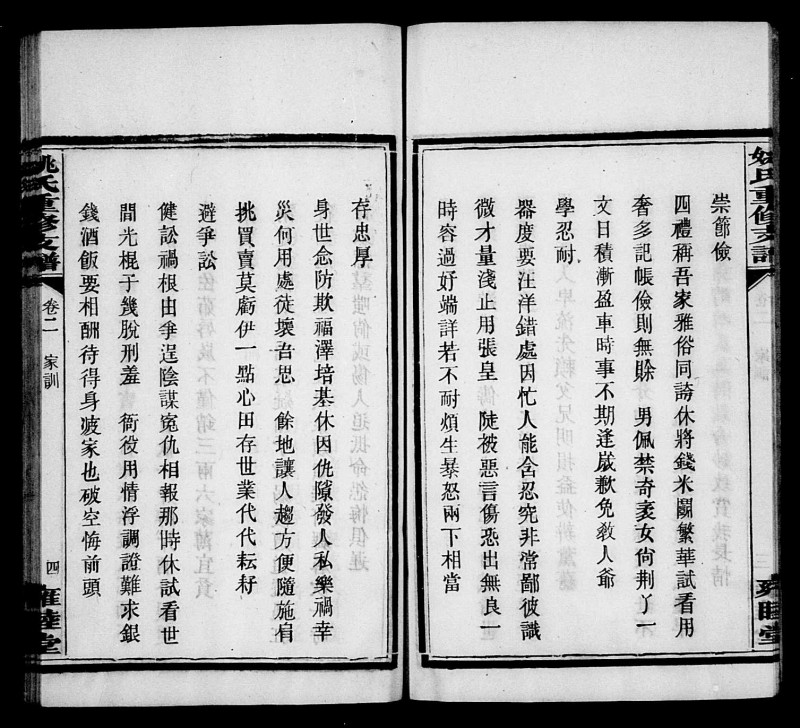 崇節儉
四禮稱吾家雅俗同誇休將錢米鬬繁華試看用
奢多記帳儉則無賒　男佩禁奇袤女尙荆丫一
文日積漸盈車時事不期逢歲歉免敎人爺
學忍耐
器度要汪洋錯處因忙人能含忍究非常鄙彼識
微才量淺止用張皇　陡被惡言傷恐出無良一
時容過好端詳若不耐煩生暴怒兩下相當
姚氏重修支譜
卷二　家訓
四
雍睦堂
存忠厚
身世念防欺福澤培基休因仇隙發人私樂禍幸
災何用處徒壞吾思　餘地讓人趨方便隨施肩
挑買賣莫虧伊一點心田存世業代代耘耔
避爭訟
健訟禍根由爭逞陰謀寃仇相報那時休試看世
間光棍子幾脫刑羞　衙役用情浮調證難求銀
錢酒飯要相酬待得身疲家也破空悔前頭